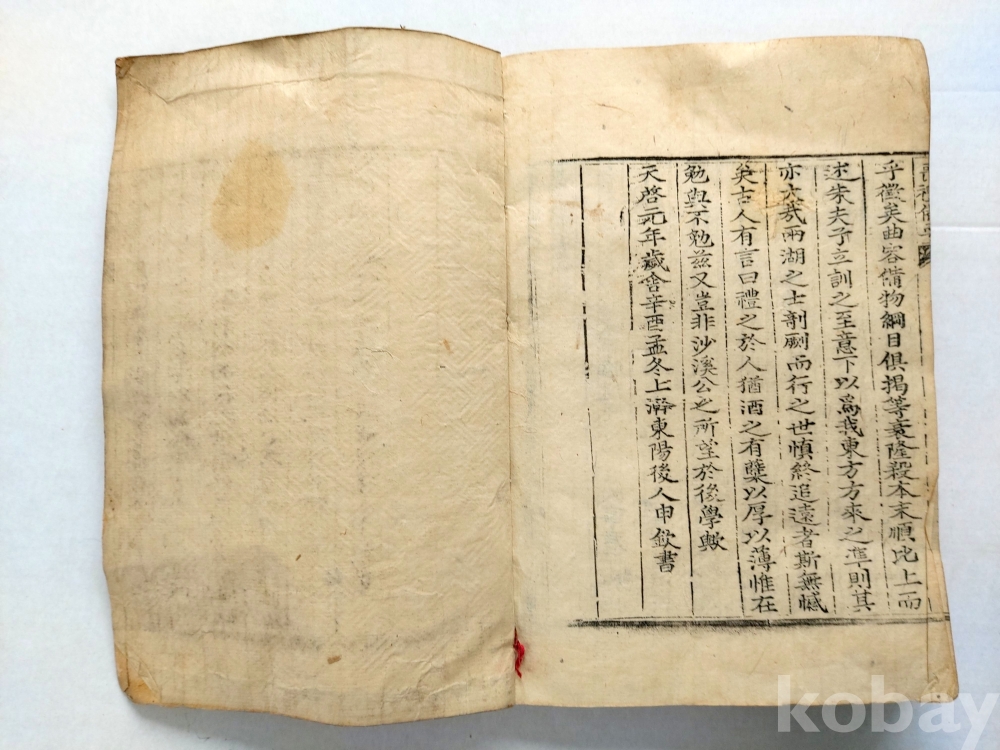 喪禮備要
乎徵矣曲容備物綱目俱揭等衰隆殺本末順比上而
述朱夫子立訓之至意下以爲我東方方來之準則其
亦大哉兩湖之士剞劂而行之世愼終追遠者斯無憾
矣古人有言曰禮之於人猶酒之有櫱以厚以薄惟在
勉與不勉兹又豈非沙溪公之所望於後學歟
天啓元年歲舍辛酉孟冬上澣東陽後人申欽書
kobay